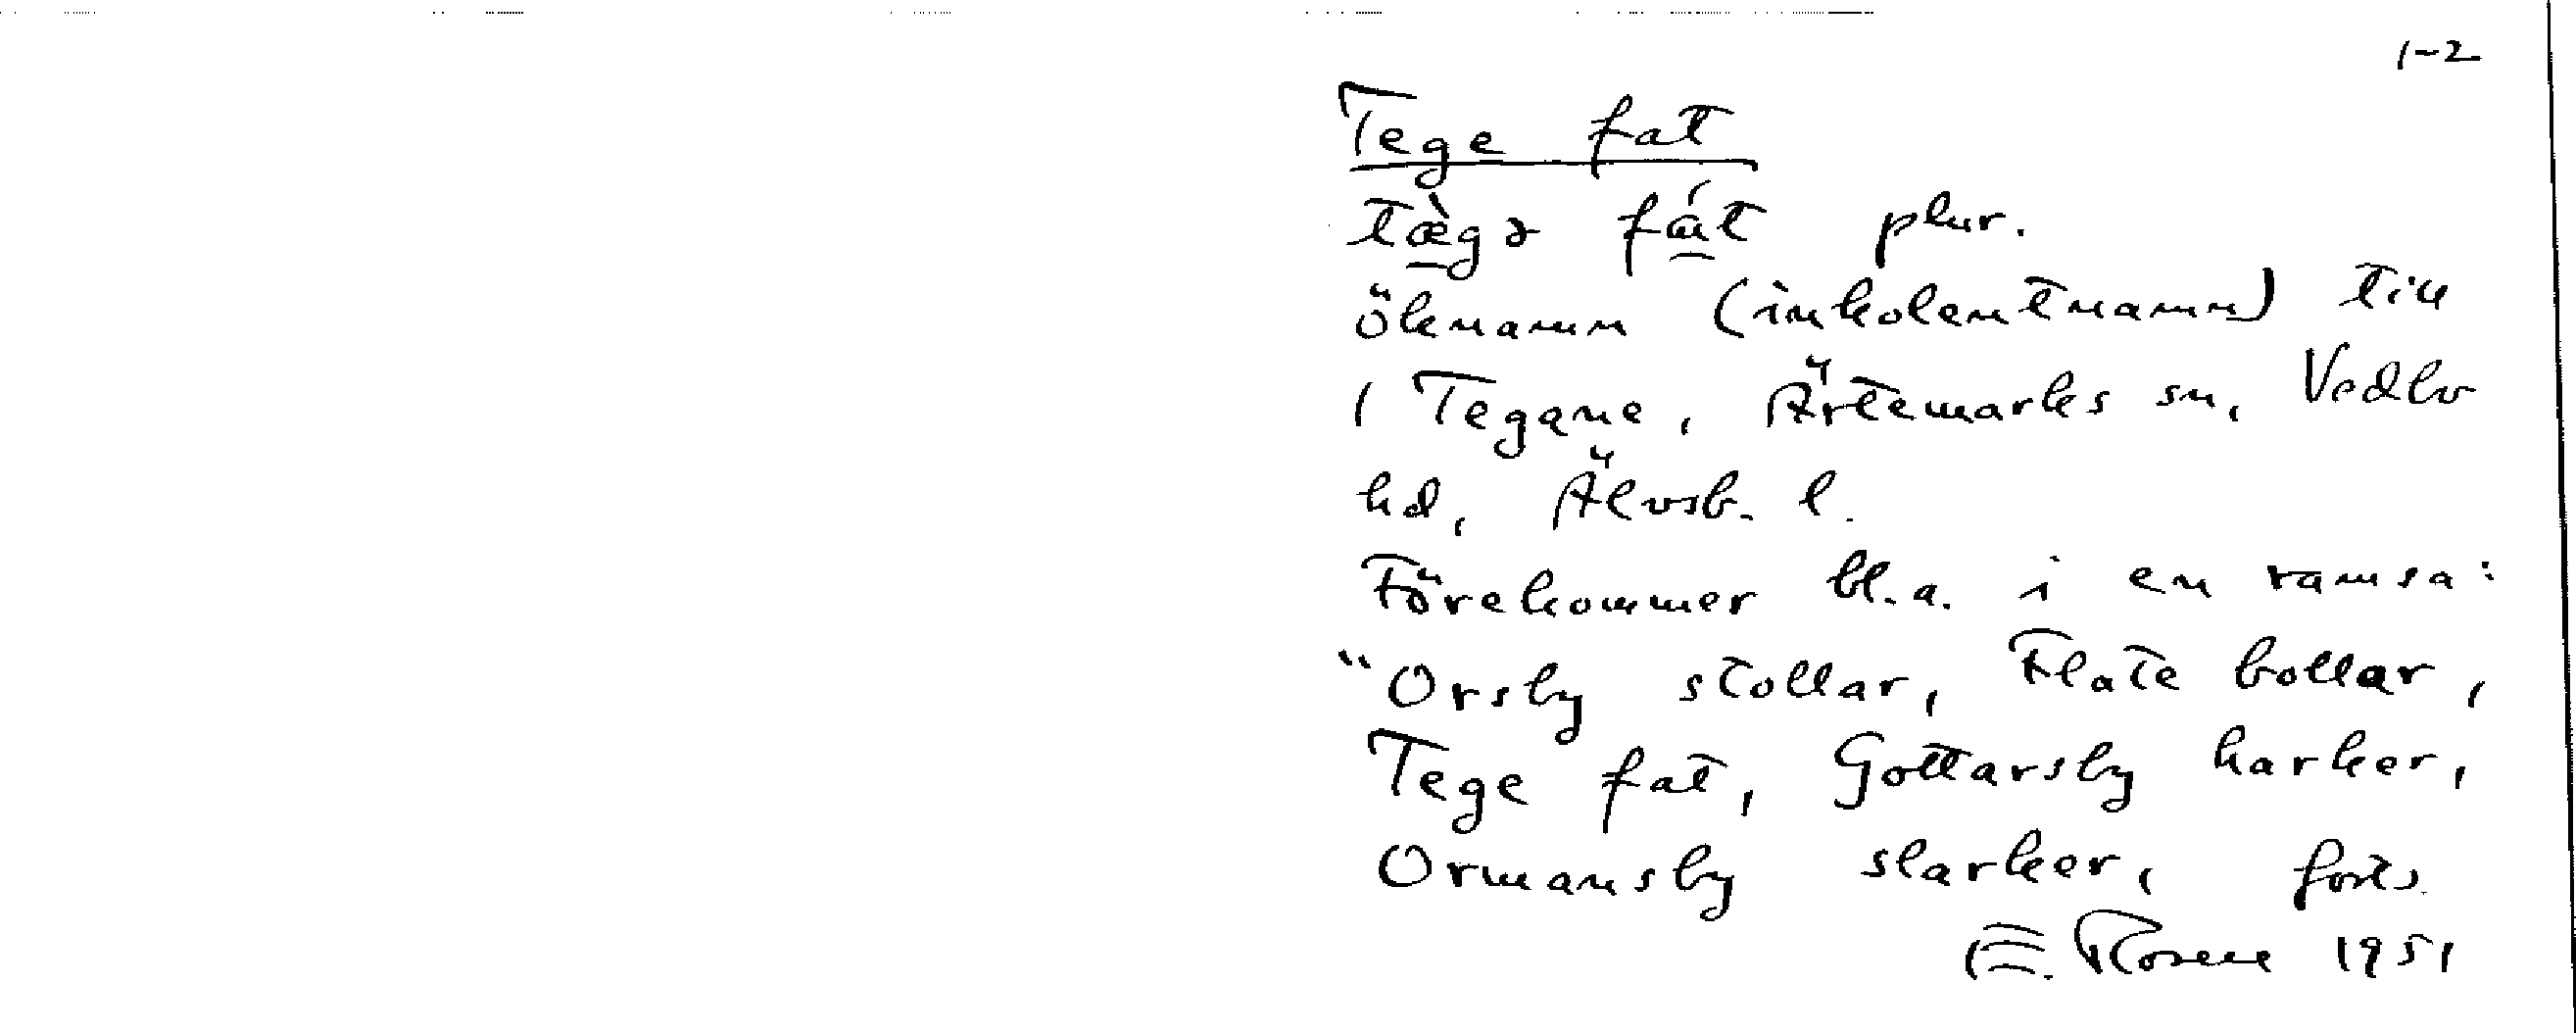 1-2
Tege fat
tæ̀gə fát plur.
öknamn (inkolentnamn) till
1 Tegane, Ärtemarks sn, Vedbo
hd, Älvsb. l.
Förekommer bl.a. i en ramsa:
"Orsby stollar, Flate bollar,
Tege fat, Gottarsby harker,
Ormansby slarker, forts.
E. Rosell 1951